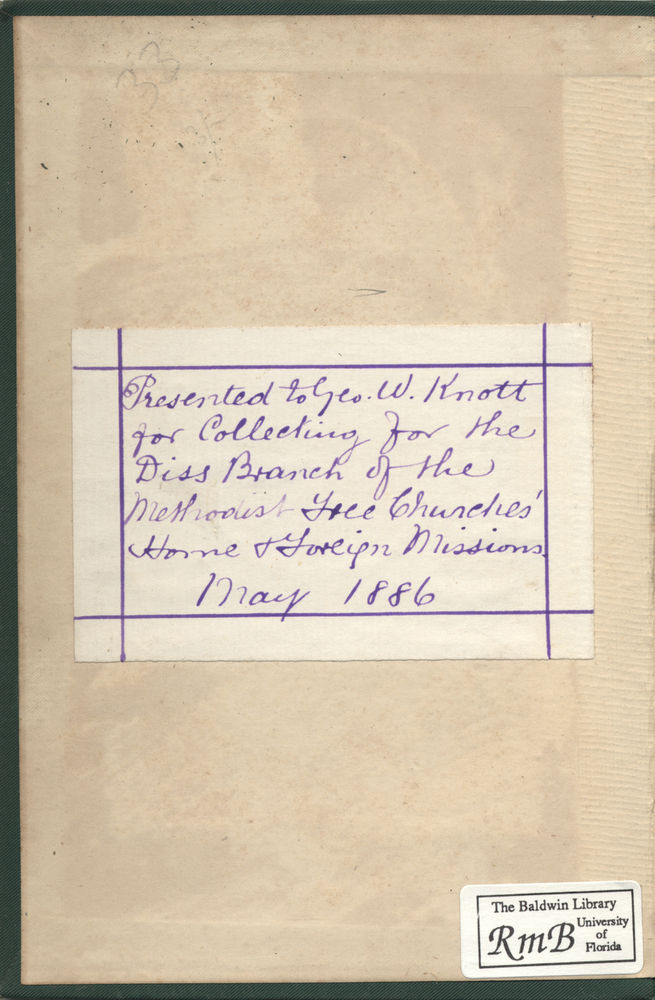 33
3/-
Presented to Geo. W. Knott
for Collecting for the
Diss Branch of the
Methodist Free Churches'
Home & Foreign Missions.
May 1886
The Baldwin Library
RmB University
of
Florida